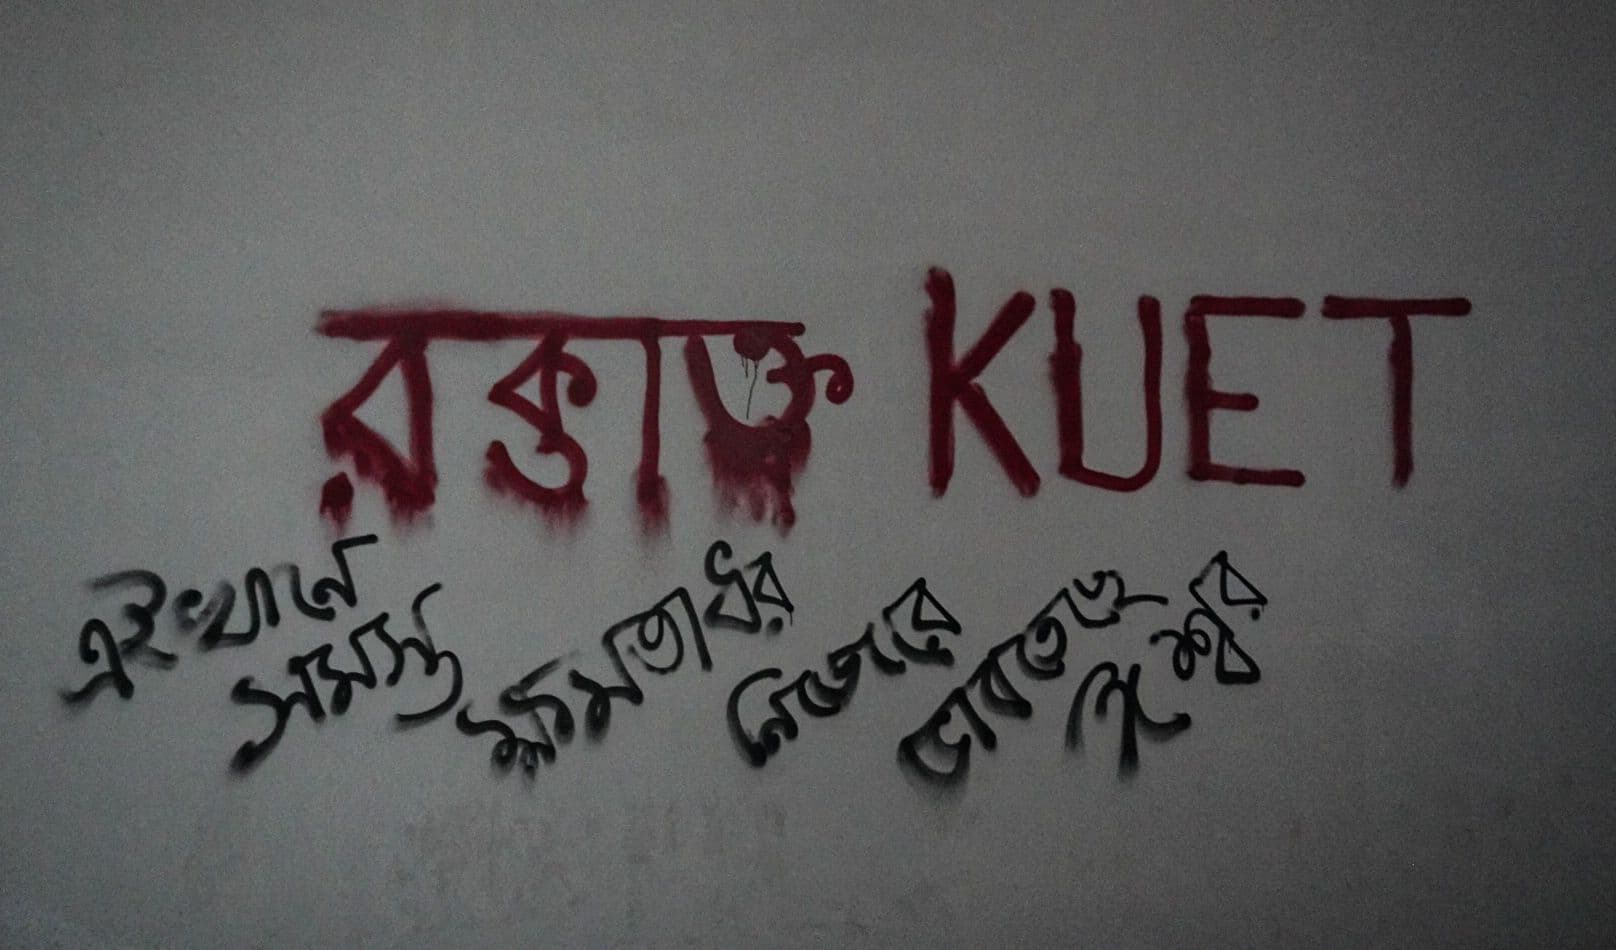 রক্তাক্ত KUET
এইখানে সমস্ত ক্ষমতাধর নিজেরে ভাবতেছে ঈশ্বর